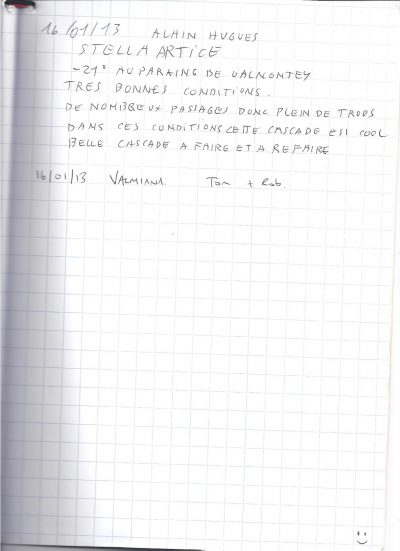 16/01/13 ALAIN HUGUES
STELLA ARTICE
-21° AU PARKING DE VALNONTEY
TRES BONNES CONDITIONS.
DE NOMBREUX PASSAGES DONC PLEIN DE TROUS
DANS CES CONDITIONS CETTE CASCADE EST COOL
BELLE CASCADE A FAIRE ET A REFAIRE
16/01/13 VALMIANA Tom + Rob.